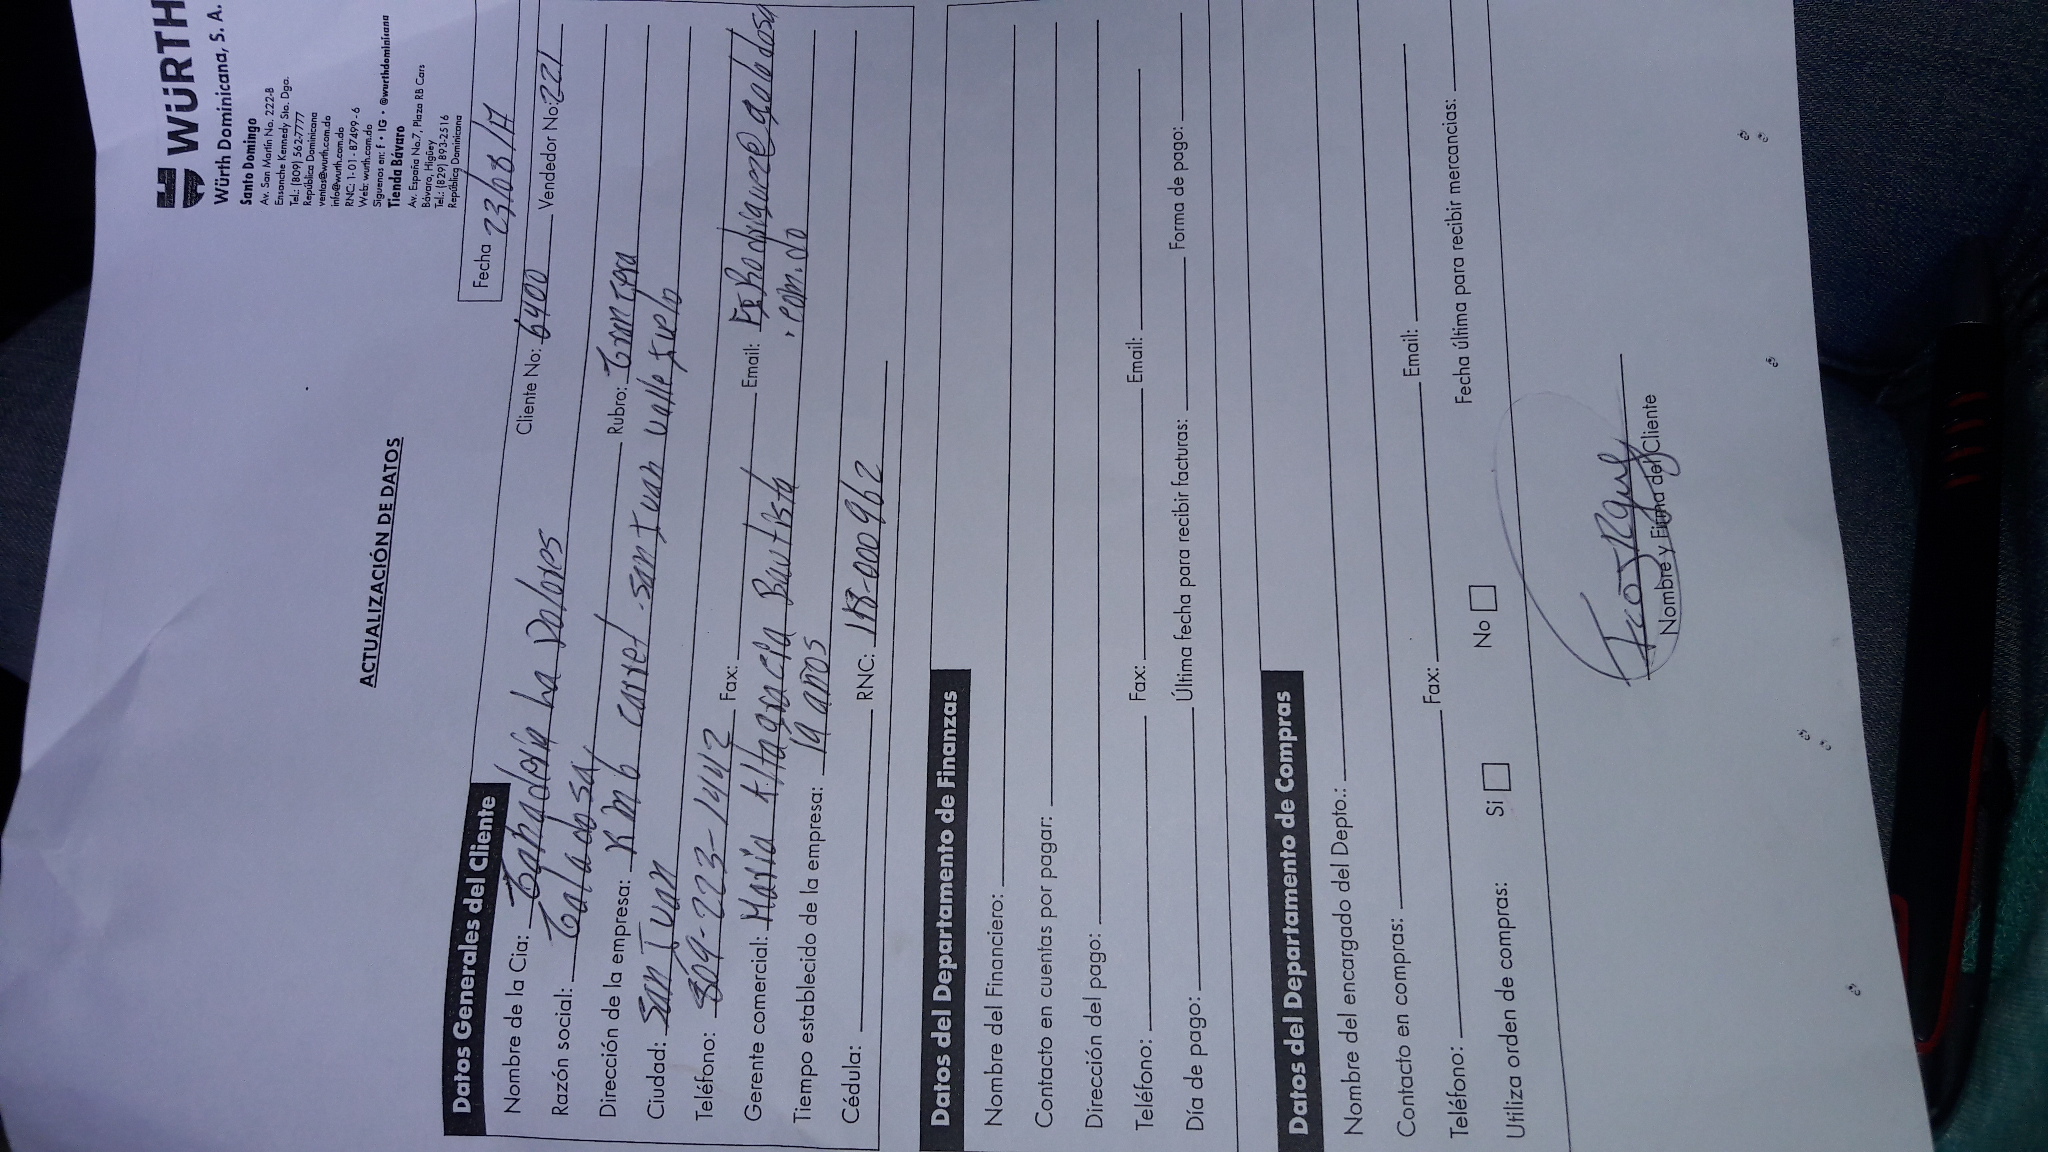 WÜRTH
Würth Dominicana, S. A.
Santo Domingo
Av. San Martín No. 222-B
Ensanche Kennedy Sto. Dgo.
Tel.: (809) 562-7777
República Dominicana
ventas@wurth.com.do
info@wurth.com.do
RNC: 1-01-87499-6
Web: wurth.com.do
Siguenos en: f • IG • @wurthdominicana
Tienda Bávaro
Av. España No.7, Plaza RB Cars
Bávaro, Higüey
Tel.: (829) 893-2516
República Dominicana
ACTUALIZACIÓN DE DATOS
Datos Generales del Cliente
Fecha 23/08/17
Nombre de la Cia: Ganadería La Dolores Cliente No: 6400 Vendedor No: 221
Razón social: Galadosa Rubro: Granjera
Dirección de la empresa: Km 6 carret San Juan valle
Ciudad: San Juan
Teléfono: 809-223-1442 Fax: Email: FJRodriguez@galadosa
.com.do
Gerente comercial: Maria Altagracia Bautista
Tiempo establecido de la empresa: 19 años
Cédula: RNC: 118-000962
Datos del Departamento de Finanzas
Nombre del Financiero:
Contacto en cuentas por pagar:
Dirección del pago:
Teléfono: Fax: Email:
Día de pago: Última fecha para recibir facturas: Forma de pago:
Datos del Departamento de Compras
Nombre del encargado del Depto.:
Contacto en compras:
Teléfono: Fax: Email:
Utiliza orden de compras: Si No Fecha última para recibir mercancias:
Nombre y Firma del Cliente